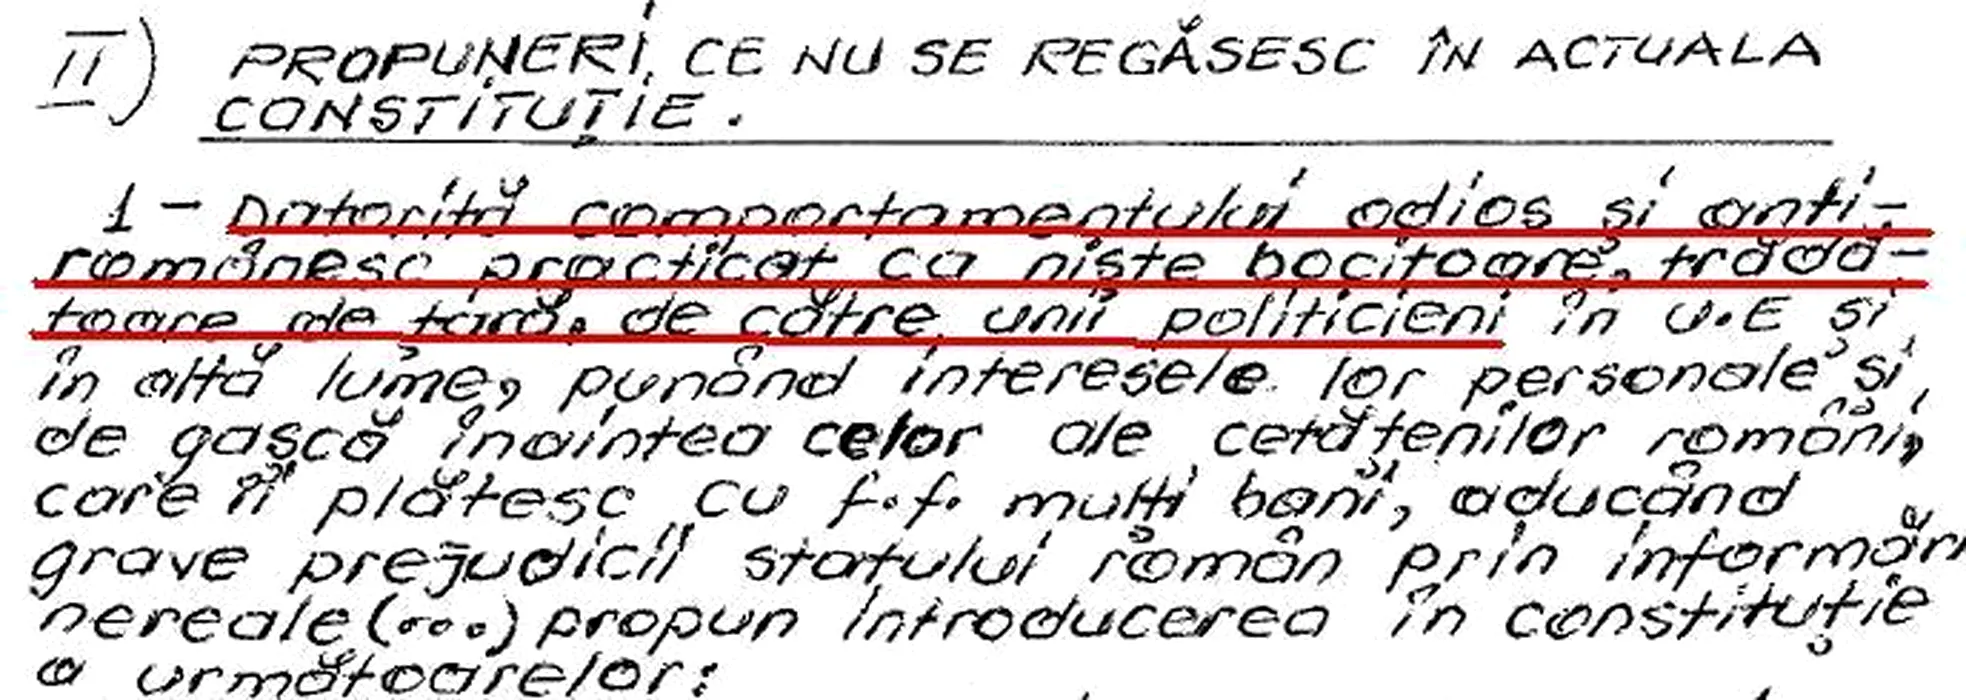 II) PROPUNERI, CE NU SE REGĂSESC ÎN ACTUALA
CONSTITUȚIE.
1 - Datorită comportamentului odios și anti-
românesc practicat ca niște bocitoare, trădă-
toare de țară, de către unii politicieni în U.E și
în altă lume, punând interesele lor personale și
de gașcă înaintea celor ale cetățenilor români,
care îi plătesc cu f.f. mulți bani, aducând
grave prejudicii statului român prin informări
nereale (...) propun introducerea în constituție
a următoarelor: